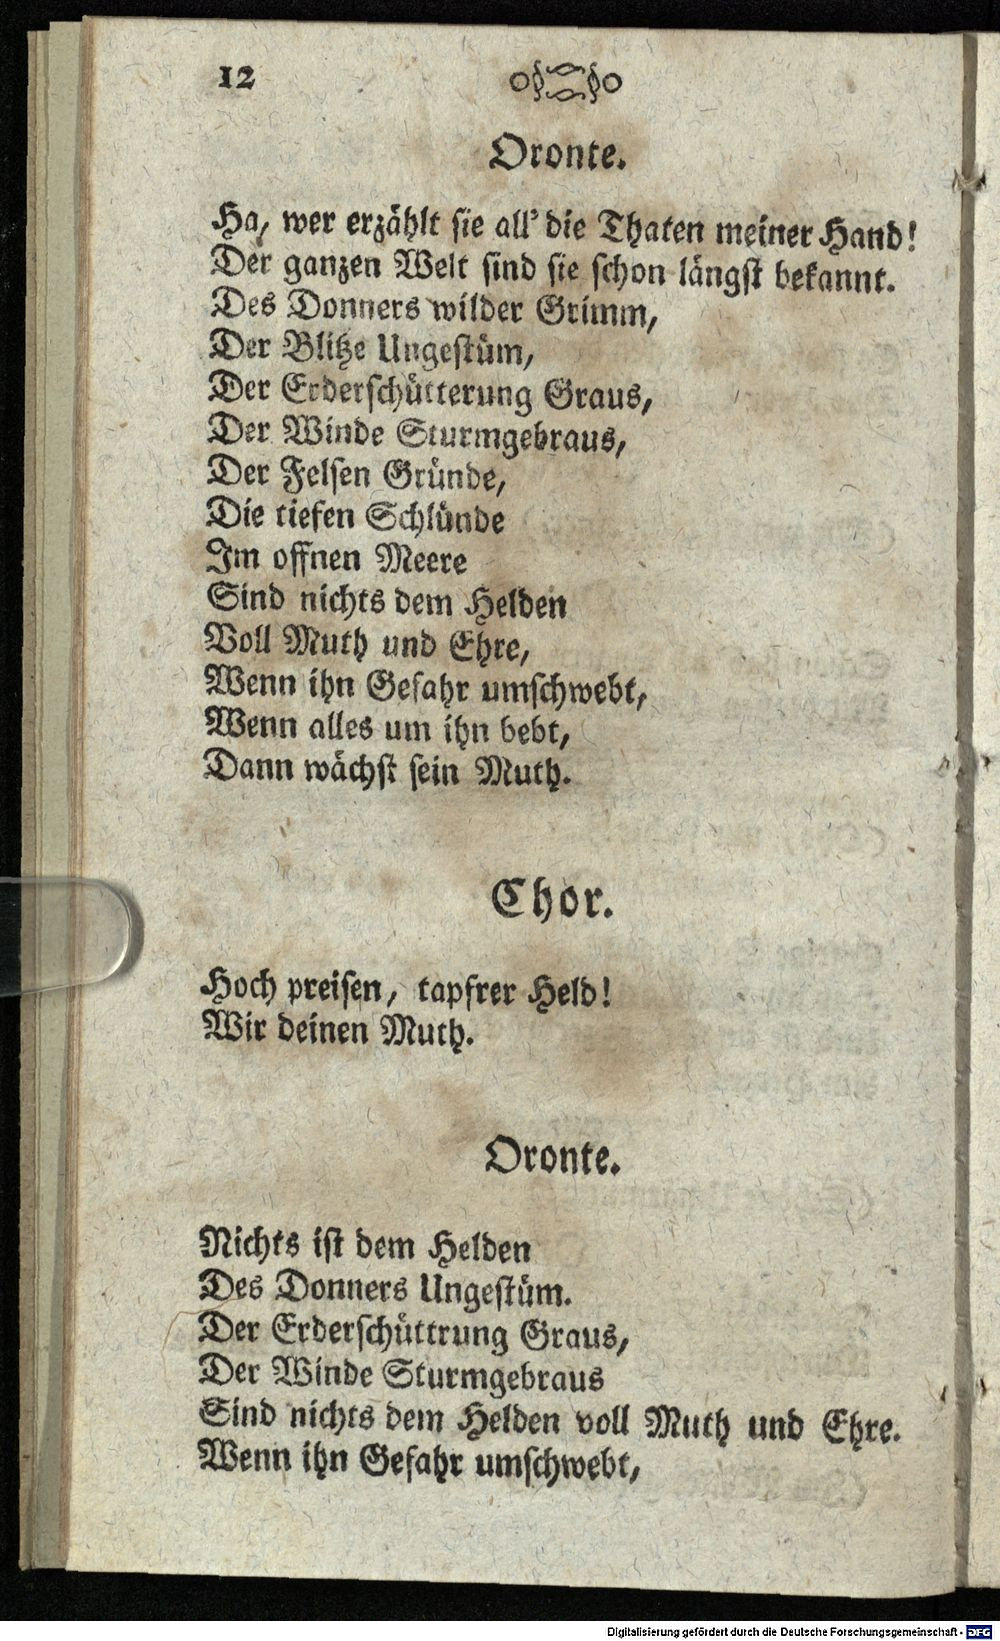 12
Oronte.
Ha, wer erzählt sie all' die Thaten meiner Hand!
Der ganzen Welt sind sie schon längst bekannt.
Des Donners wilder Grimm,
Der Blitze Ungestüm,
Der Erderschütterung Graus,
Der Winde Sturmgebraus,
Der Felsen Gründe,
Die tiefen Schlünde
Im offnen Meere
Sind nichts dem Helden
Voll Muth und Ehre,
Wenn ihn Gefahr umschwebt,
Wenn alles um ihn bebt,
Dann wächst sein Muth.
Chor.
Hoch preisen, tapfrer Held!
Wir deinen Muth.
Oronte.
Nichts ist dem Helden
Des Donners Ungestüm.
Der Erderschüttrung Graus,
Der Winde Sturmgebraus
Sind nichts dem Helden voll Muth und Ehre.
Wenn ihn Gefahr umschwebt,
Digitalisierung gefördert durch die Deutsche Forschungsgemeinschaft - DFG